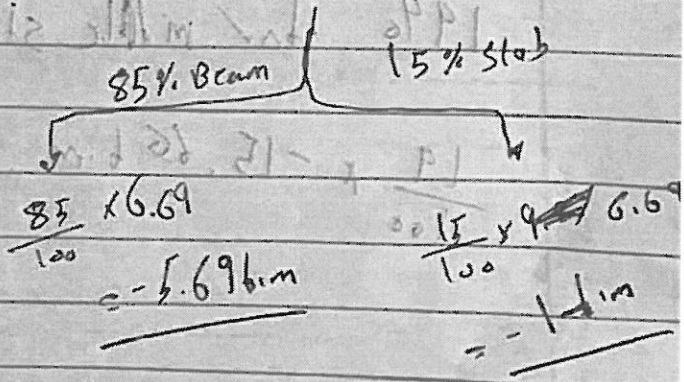 85% Beam
15% Slab
85/100 x 6.69
= -5.69 b.m
15/100 x 6.69
= -1